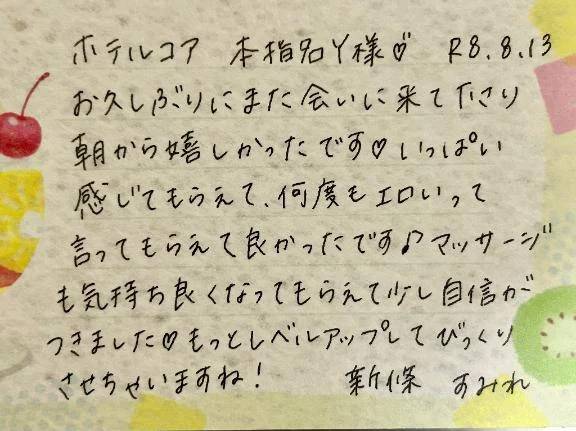 ホテルコア 本指名Y様♡ R8.8.13
お久しぶりにまた会いに来て下さり
朝から嬉しかったです♡いっぱい
感じてもらえて、何度もエロいって
言ってもらえて良かったです♪マッサージ
も気持ち良くなってもらえて少し自信が
つきました♡もっとレベルアップしてびっくり
させちゃいますね!
新條 すみれ